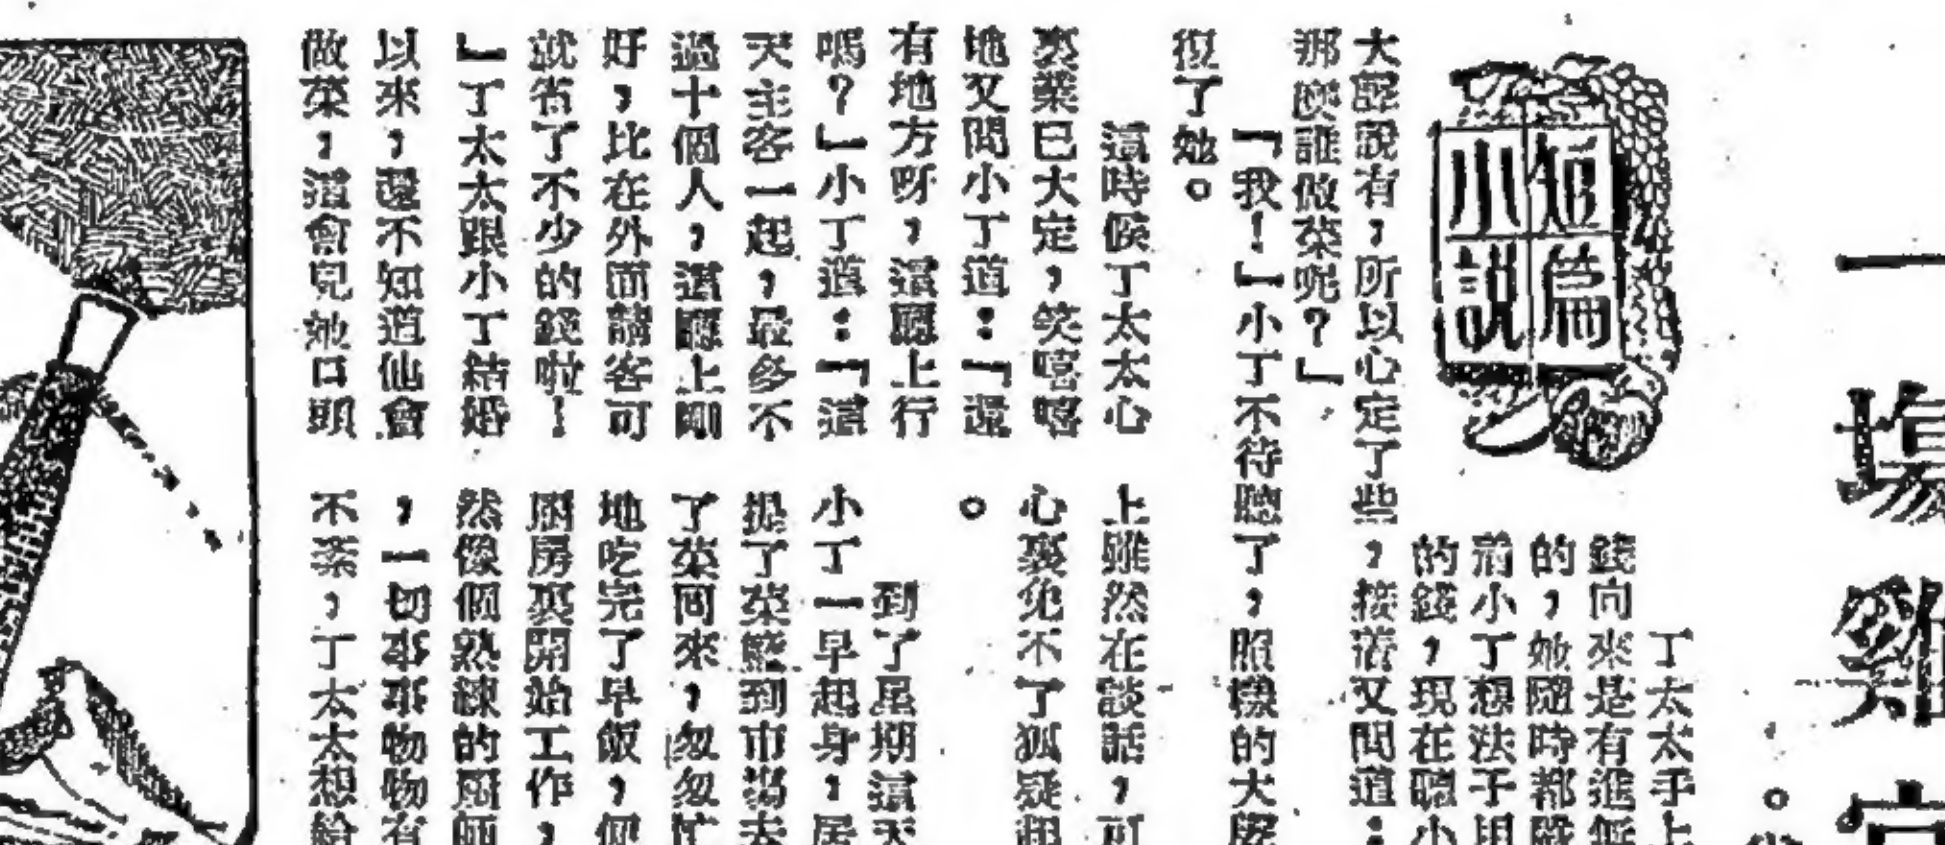 一塲雞
短篇
小説
丁太太手上
錢向來是有進無
的，她隨時都
小丁想法子用
的錢，現在聽小
大聲說有，所以心定了些，接着又問道：
那麽誰做菜呢？」
「我！」小丁不待聽了，照樣的大聲
復了她。
這時候丁太太心
裏業已大定，笑嘻嘻
地又問小丁道：「還
有地方呀，這廳上行
嗎？」小丁道：「這
天主客一起，最多不
過十個人，這廳上剛
好，比在外面請客可
就省了不少的錢啦！
」丁太太跟小丁結婚
以來，還不知道他會
做菜，這會兒她口頭
上雖然在談話，可
心裏免不了狐疑起
。
到了星期這天
小丁一早起身，居
提了菜籃到市場去
了菜回來，匆匆忙
地吃完了早飯，便
厨房裏開始工作，
然像個熟練的厨師
，一切事事物物有
不紊，丁太太想給